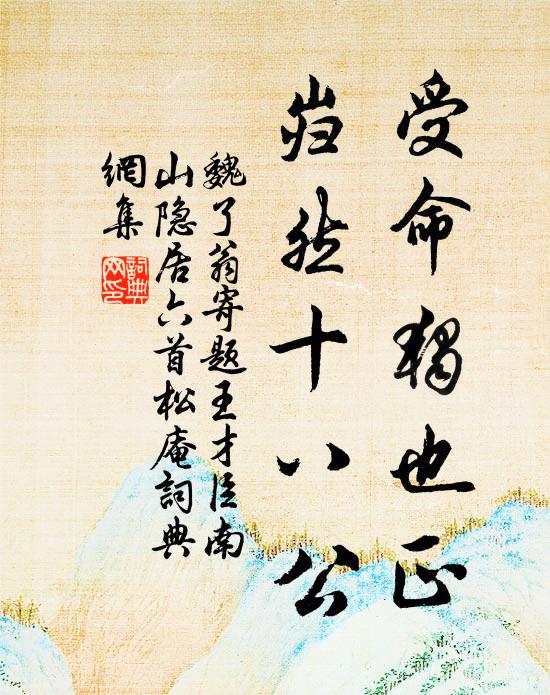 受命獨也正
岿然十八公
魏了翁寄题王才臣南
山隐居六首松庵詞典
網集
詞典
网印